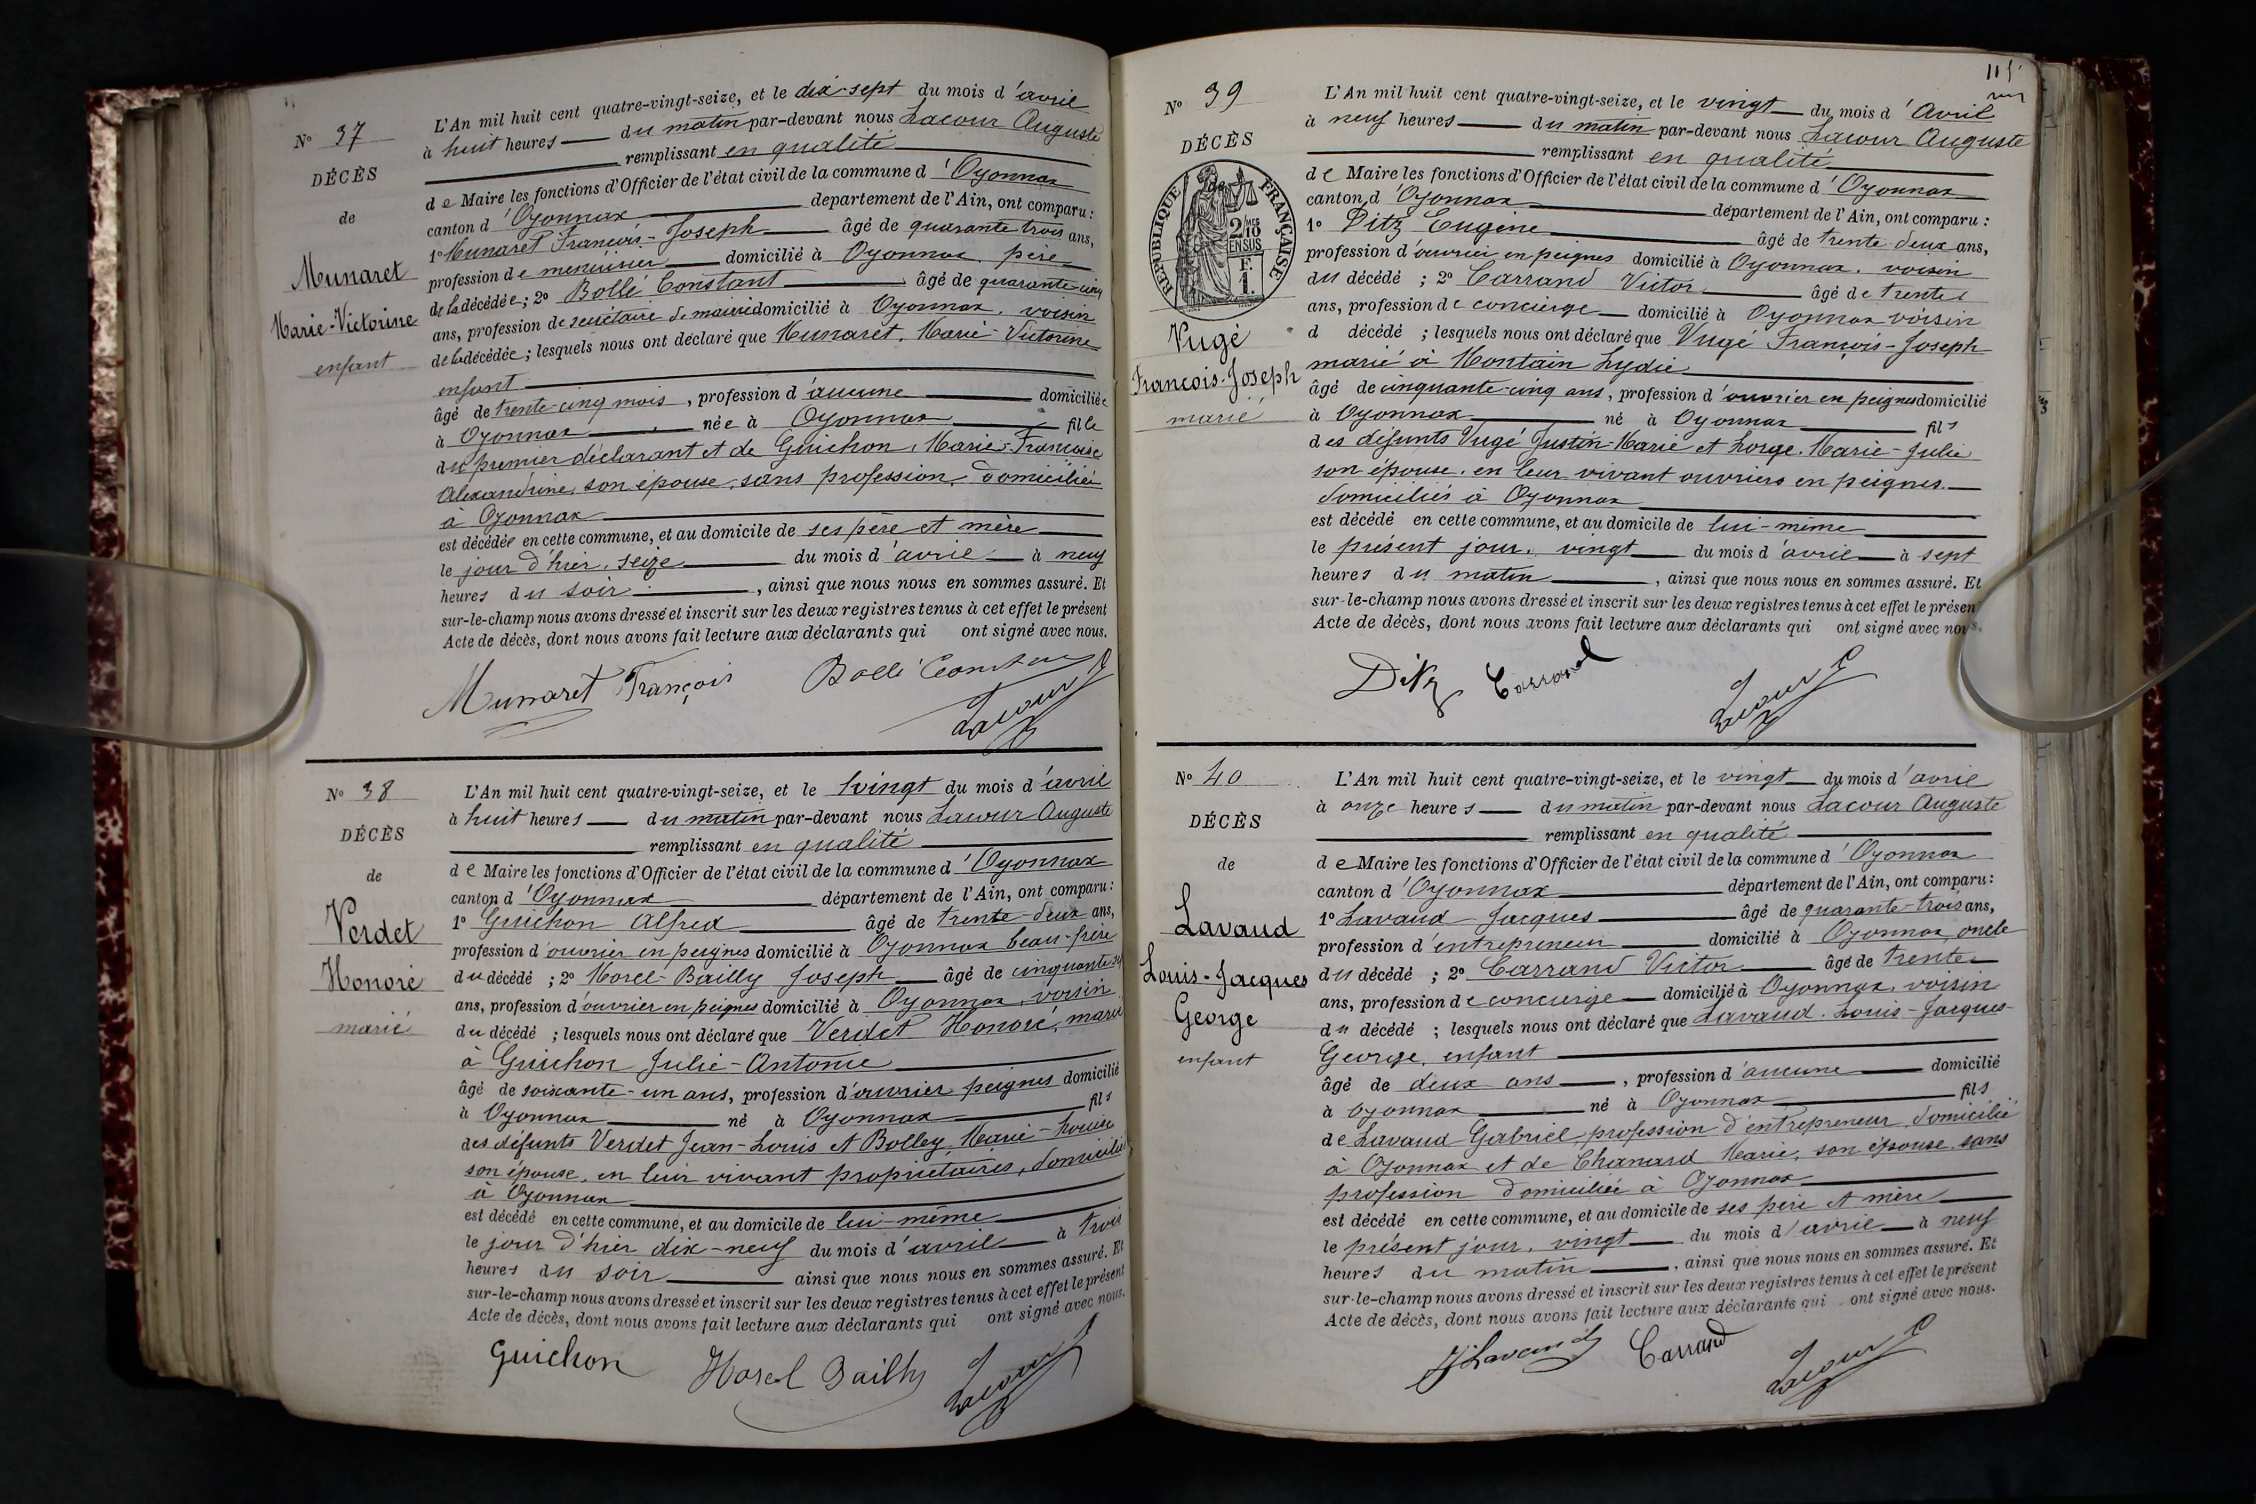 N° 37
DÉCÈS
de
Munaret
Marie-Victorine
enfant
L'An mil huit cent quatre-vingt-seize, et le dix-sept du mois d'avril
à huit heures du matin par-devant nous Lacour Auguste
remplissant en qualité
de Maire les fonctions d'Officier de l'état civil de la commune d'Oyonnax
canton d'Oyonnax département de l'Ain, ont comparu :
1° Munaret François-Joseph âgé de quarante trois ans,
profession de menuisier domicilié à Oyonnax, père
de la décédée ; 2° Bollé Constant âgé de quarante-cinq
ans, profession de secrétaire de mairie domicilié à Oyonnax, voisin
de la décédée ; lesquels nous ont déclaré que Munaret, Marie-Victorine
enfant
âgé de trente-cinq mois, profession d'aucune domiciliée
à Oyonnax née à Oyonnax fille
du premier déclarant et de Guichon, Marie-Françoise
Alexandrine, son épouse, sans profession, domiciliée
à Oyonnax
est décédée en cette commune, et au domicile de ses père et mère
le jour d'hier, seize du mois d'avril à neuf
heures du soir, ainsi que nous nous en sommes assuré. Et
sur-le-champ nous avons dressé et inscrit sur les deux registres tenus à cet effet le présent
Acte de décès, dont nous avons fait lecture aux déclarants qui ont signé avec nous.
Munaret François Bollé Constant
Lacour
N° 38
DÉCÈS
de
Verdet
Honoré
marié
L'An mil huit cent quatre-vingt-seize, et le vingt du mois d'avril
à huit heures du matin par-devant nous Lacour Auguste
remplissant en qualité
de Maire les fonctions d'Officier de l'état civil de la commune d'Oyonnax
canton d'Oyonnax département de l'Ain, ont comparu :
1° Guichon Alfred âgé de trente-deux ans,
profession d'ouvrier en peignes domicilié à Oyonnax beau-frère
du décédé ; 2° Morel-Bailly Joseph âgé de cinquante
ans, profession d'ouvrier en peignes domicilié à Oyonnax, voisin
du décédé ; lesquels nous ont déclaré que Verdet Honoré, marié
à Guichon Julie-Antonie
âgé de soixante-un ans, profession d'ouvrier peignes domicilié
à Oyonnax né à Oyonnax fils
des défunts Verdet Jean-Louis et Bolley Marie-Louise
son épouse, en leur vivant propriétaires, domiciliés
à Oyonnax
est décédé en cette commune, et au domicile de lui-même
le jour d'hier dix-neuf du mois d'avril à trois
heures du soir ainsi que nous nous en sommes assuré. Et
sur-le-champ nous avons dressé et inscrit sur les deux registres tenus à cet effet le présent
Acte de décès, dont nous avons fait lecture aux déclarants qui ont signé avec nous.
Guichon Morel Bailly Lacour
115
N° 39
DÉCÈS
de
RÉPUBLIQUE FRANÇAISE
2 MES 10
EN SUS
F.
1.
Vugé
François-Joseph
marié
L'An mil huit cent quatre-vingt-seize, et le vingt du mois d'Avril
à neuf heures du matin par-devant nous Lacour Auguste
remplissant en qualité
de Maire les fonctions d'Officier de l'état civil de la commune d'Oyonnax
canton d'Oyonnax département de l'Ain, ont comparu :
1° Ditz Eugène âgé de trente-deux ans,
profession d'ouvrier en peignes domicilié à Oyonnax, voisin
du décédé ; 2° Carrand Victor âgé de trente
ans, profession de concierge domicilié à Oyonnax voisin
d décédé ; lesquels nous ont déclaré que Vugé François-Joseph
marié à Montain Lydie
âgé de cinquante-cinq ans, profession d'ouvrier en peignes domicilié
à Oyonnax né à Oyonnax fils
des défunts Vugé Justin-Marie et Lorge, Marie-Julie
son épouse, en leur vivant ouvriers en peignes
domiciliés à Oyonnax
est décédé en cette commune, et au domicile de lui-même
le présent jour, vingt du mois d'avril à sept
heures du matin, ainsi que nous nous en sommes assuré. Et
sur-le-champ nous avons dressé et inscrit sur les deux registres tenus à cet effet le présen
Acte de décès, dont nous avons fait lecture aux déclarants qui ont signé avec nous.
Ditz Carrand
Lacour
N° 40
DÉCÈS
de
Lavaud
Louis-Jacques
George
enfant
L'An mil huit cent quatre-vingt-seize, et le vingt du mois d'avril
à onze heures du matin par-devant nous Lacour Auguste
remplissant en qualité
de Maire les fonctions d'Officier de l'état civil de la commune d'Oyonnax
canton d'Oyonnax département de l'Ain, ont comparu :
1° Lavaud Jacques âgé de quarante-trois ans,
profession d'entrepreneur domicilié à Oyonnax, oncle
du décédé ; 2° Carrand Victor âgé de trente
ans, profession de concierge domicilié à Oyonnax, voisin
du décédé ; lesquels nous ont déclaré que Lavaud, Louis-Jacques-
George, enfant
âgé de deux ans, profession d'aucune domicilié
à Oyonnax né à Oyonnax fils
de Lavaud Gabriel, profession d'entrepreneur, domicilié
à Oyonnax et de Chanard Marie, son épouse, sans
profession domiciliée à Oyonnax
est décédé en cette commune, et au domicile de ses père et mère
le présent jour, vingt du mois d'avril à neuf
heures du matin, ainsi que nous nous en sommes assuré. Et
sur-le-champ nous avons dressé et inscrit sur les deux registres tenus à cet effet le présent
Acte de décès, dont nous avons fait lecture aux déclarants qui ont signé avec nous.
J Lavaud Carrand Lacour